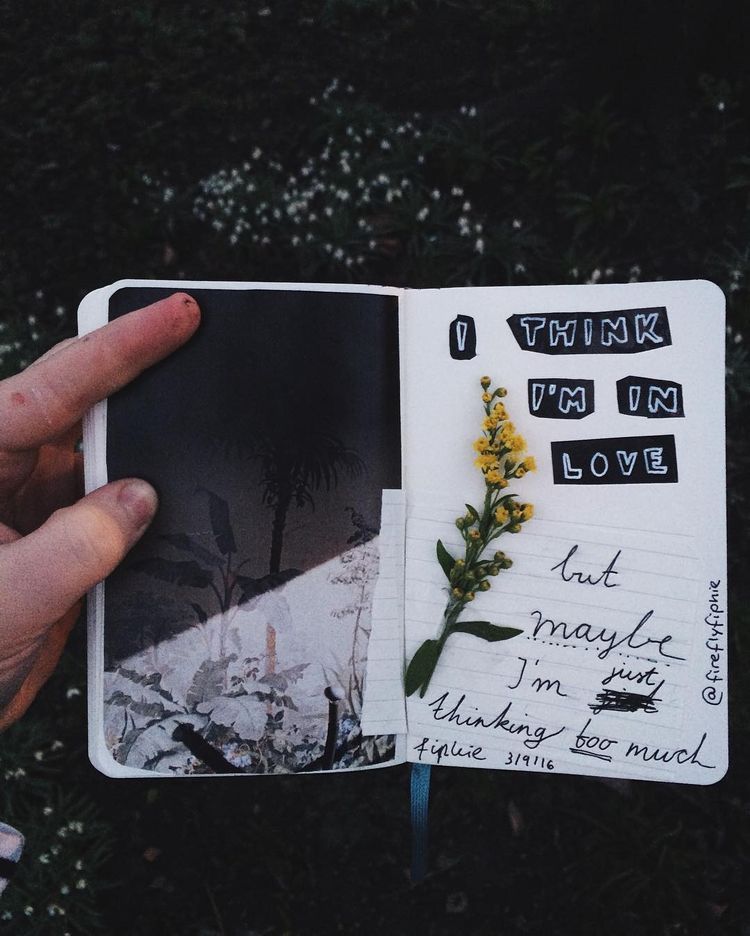 I THINK
I'M IN
LOVE
but
maybe
I'm just
thinking too much
fiphie 3/9/16
@fireflyfiphie